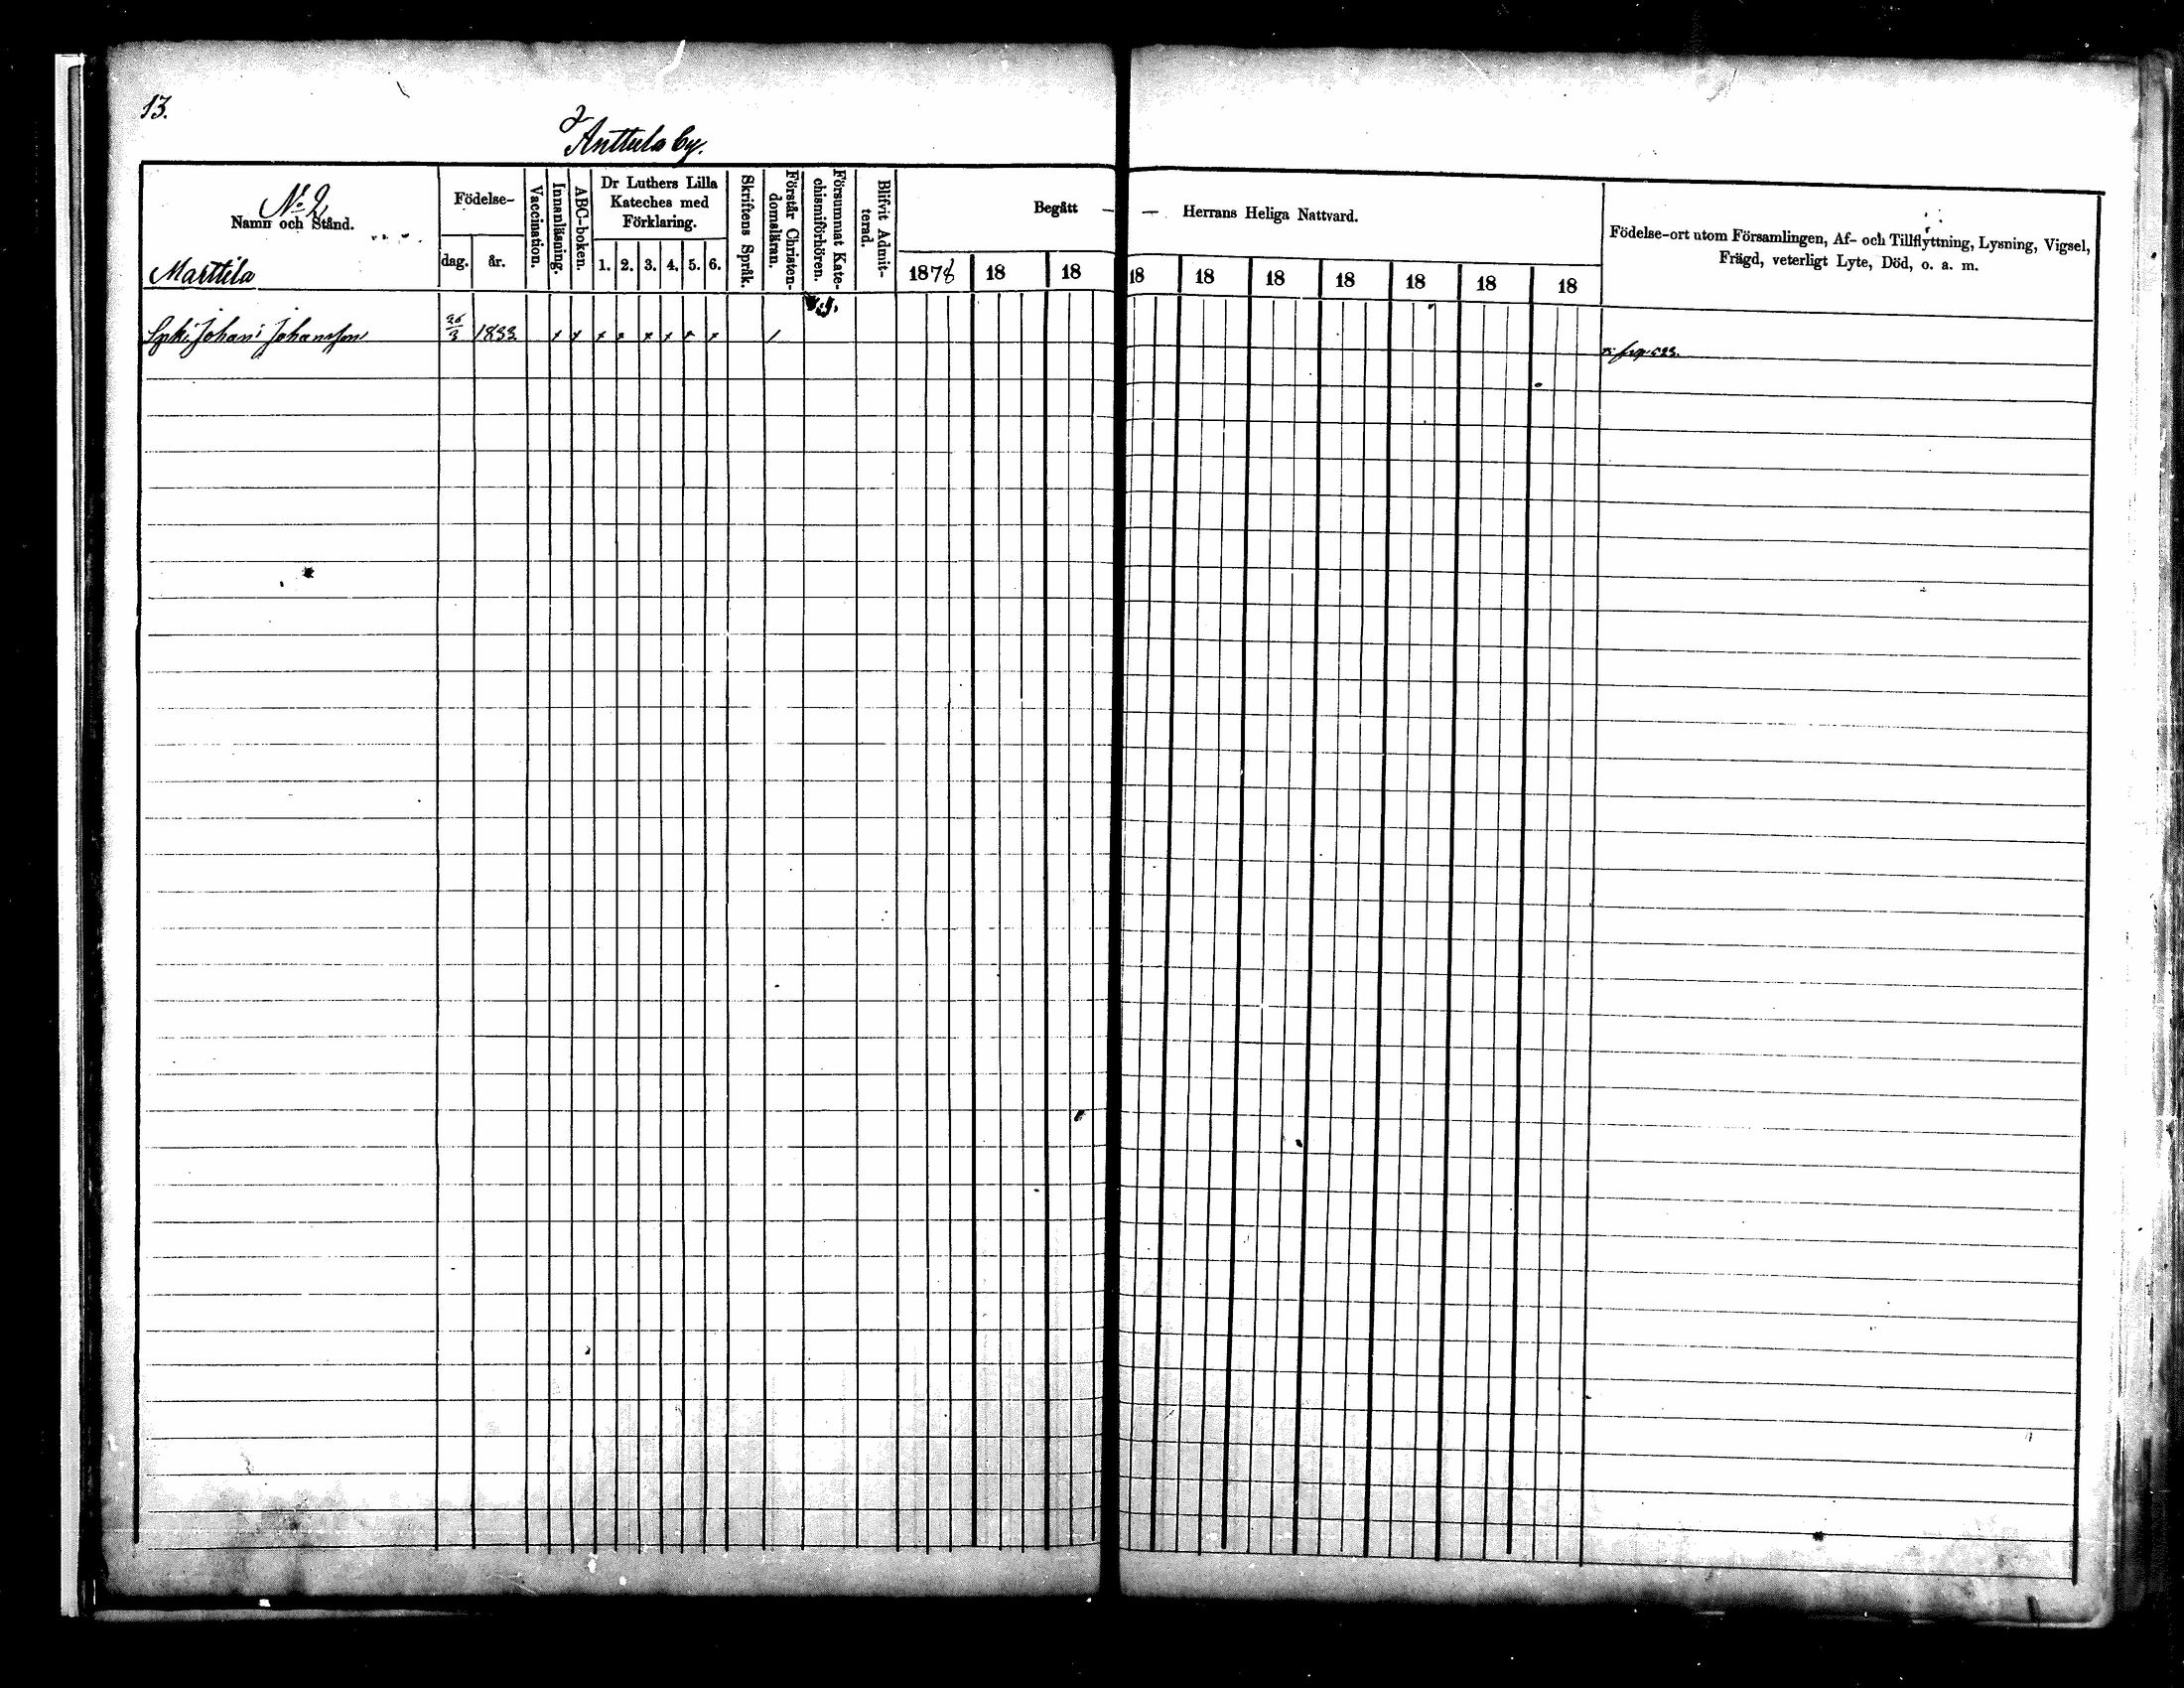 13.
Anttula by.
No 2
Namn och Stånd.
Marttila
Födelse-
dag.
år.
Vaccination.
Innanläsning.
ABC-boken.
Dr Luthers Lilla
Kateches med
Förklaring.
1. 2. 3. 4. 5. 6.
Skriftens Språk.
Förstår Christen-
domsläran.
Försummat Kate-
chismiförhören.
Blifvit Admit-
terad.
Begått — — Herrans Heliga Nattvard.
1878 18 18 18 18 18 18 18 18 18
Födelse-ort utom Församlingen, Af- och Tillflyttning, Lysning, Vigsel,
Frägd, veterligt Lyte, Död, o. a. m.
Johani Johansson 26/3 1833 x x x x x x x x /